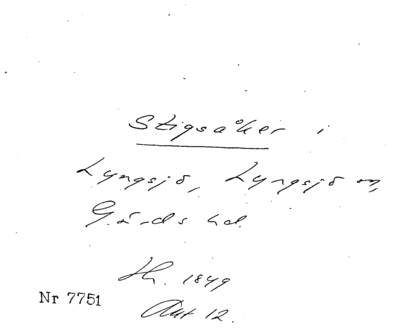 Stigsåker i
Lyngsjö, Lyngsjö sn,
Gärds hd.
Hr. 1849
Akt 12.
Nr 7751